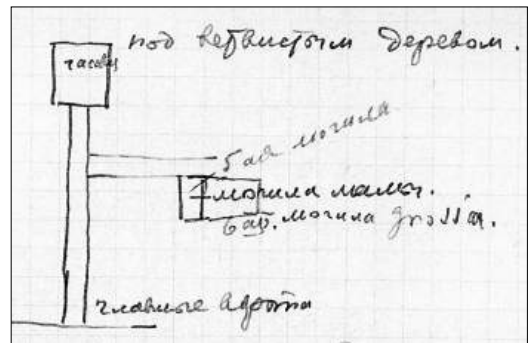 под ветвистым деревом.
часовн
5 ая могила
могила мамы.
6 ая. могила
главные ворота